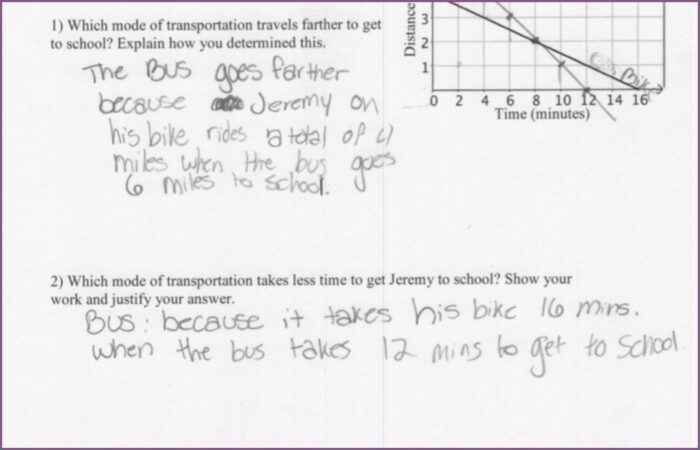 1) Which mode of transportation travels farther to get
to school? Explain how you determined this.
The Bus goes farther
because Jeremy on
his bike rides a total of 4
miles when the bus goes
6 miles to school.
Distance
3
2
1
Bike
0 2 4 6 8 10 12 14 16
Time (minutes)
2) Which mode of transportation takes less time to get Jeremy to school? Show your
work and justify your answer.
Bus: because it takes his bike 16 mins.
when the bus takes 12 mins to get to school